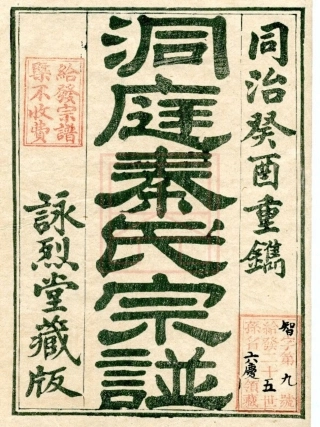 同治癸酉重鐫
洞庭秦氏宗譜
詠烈堂藏版
給發宗譜
槩不收費
智字第九號
給發二十五世
孫百六慶領藏